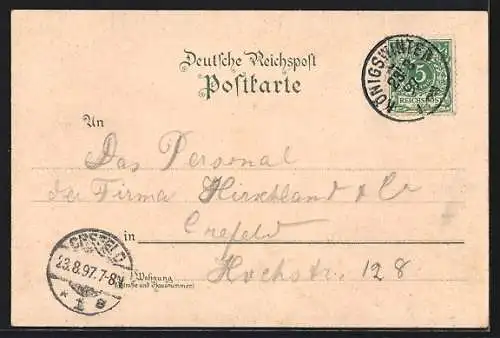 Deutsche Reichspost
Postkarte
KÖNIGSWINTER
5
REICHSPOST
An
Das Personal
der Firma Hirschland & Co
in Crefeld
CREFELD
23.8.97.7-8N
* 1 a
Wohnung
(Straße und Hausnummer)
Hochstr. 128